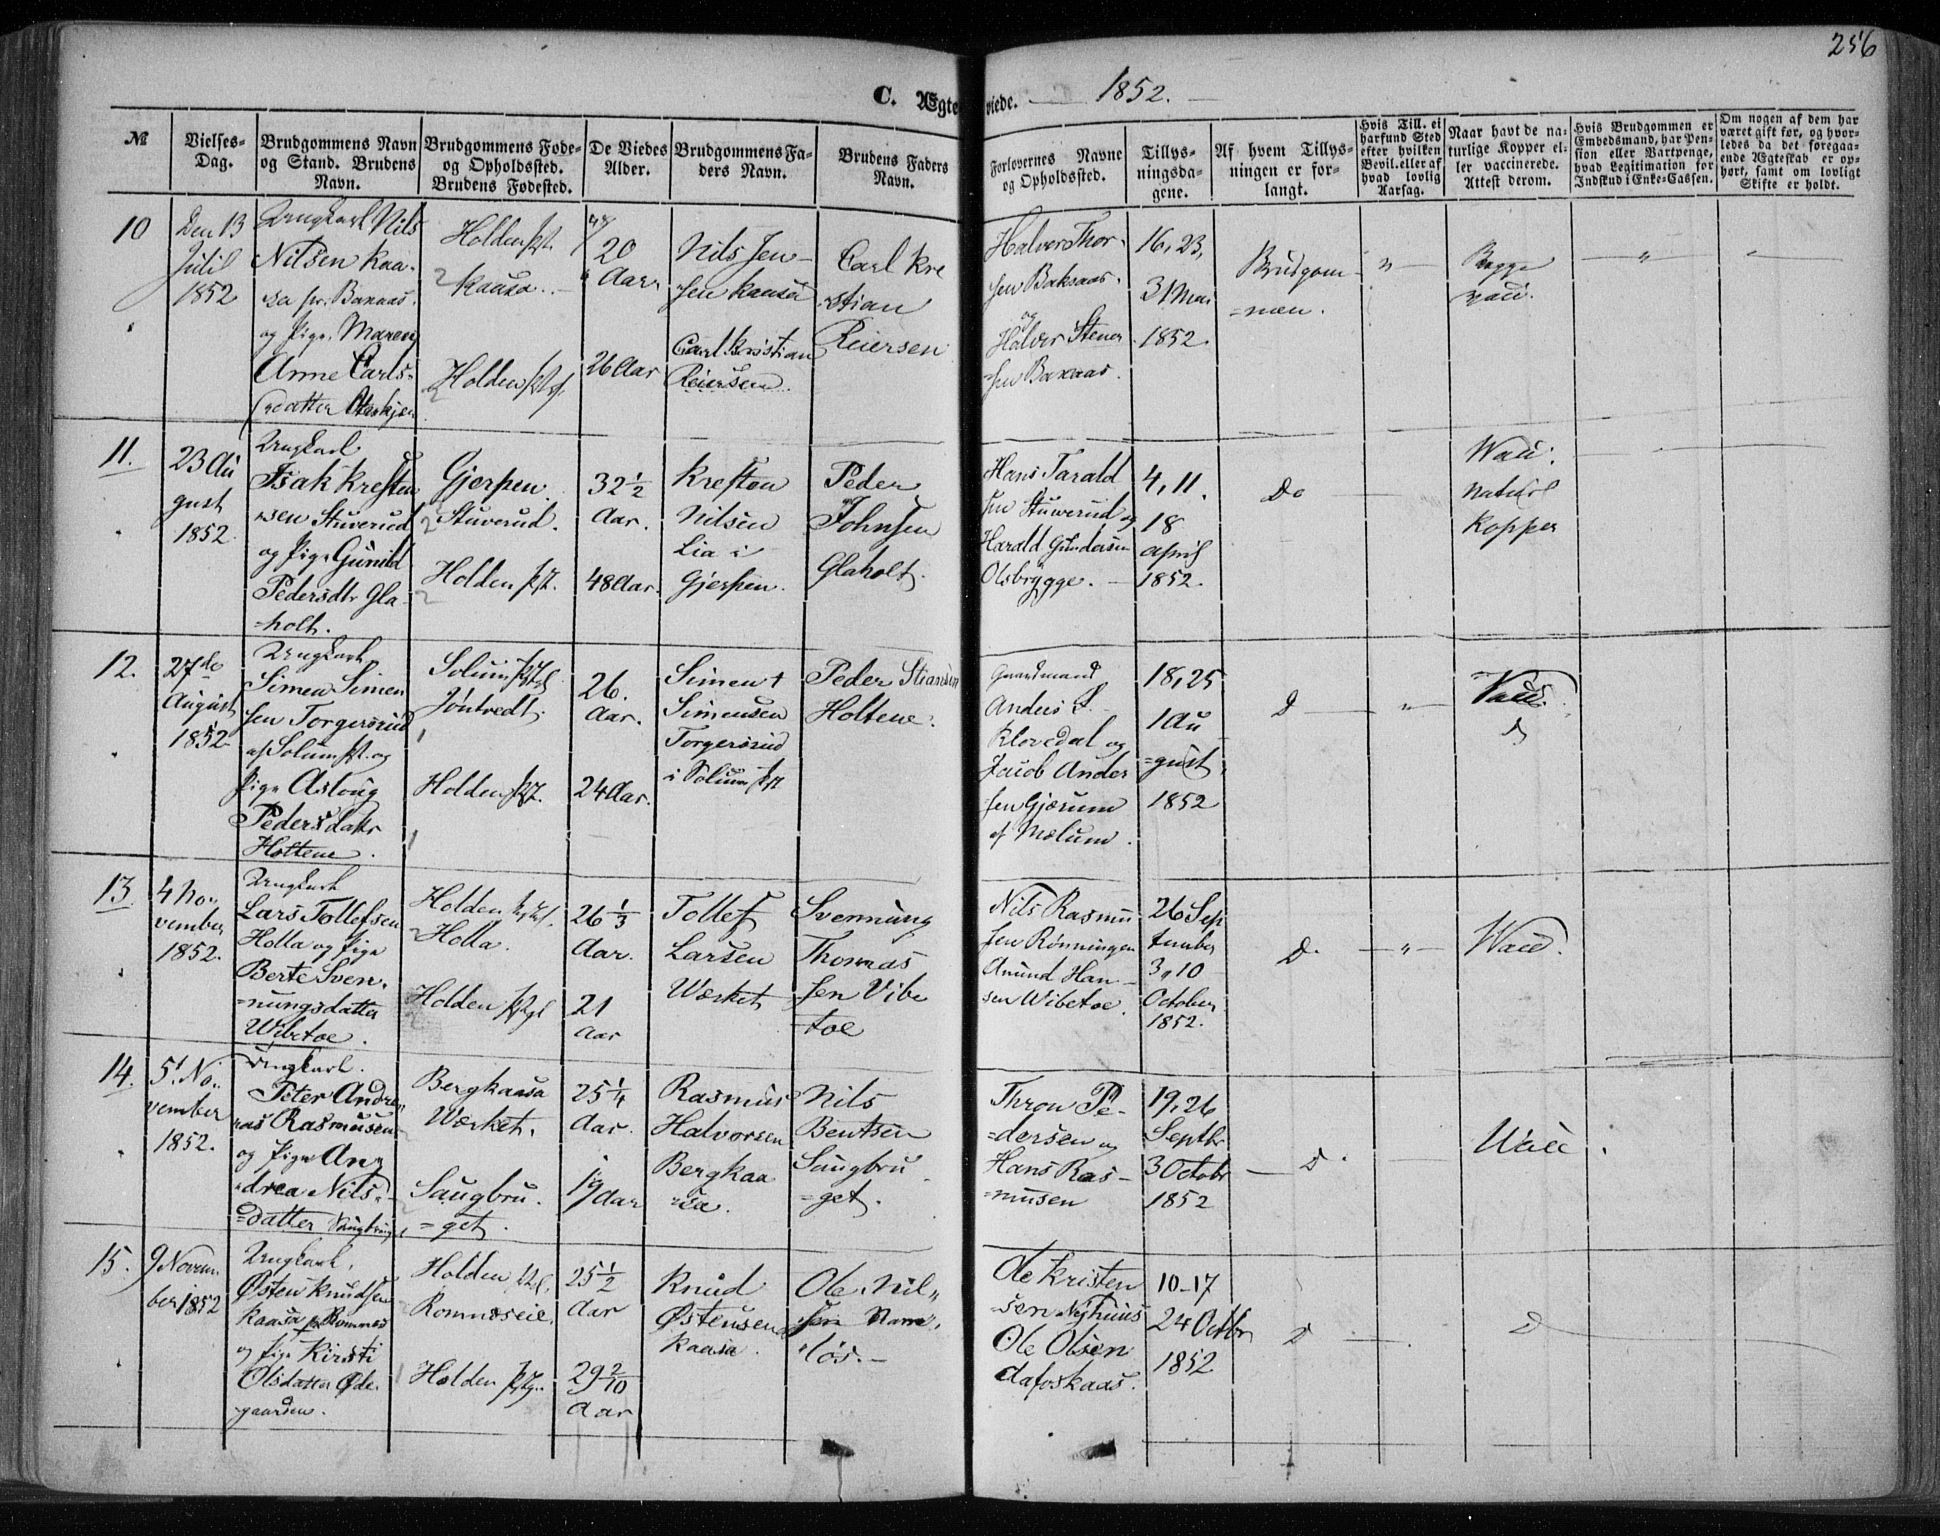 256
C. Ægteviede. 1852.
№
Vielses-Dag.
Brudgommens Navn og Stand. Brudens Navn.
Brudgommens Føde- og Opholdssted. Brudens Fødested.
De Viedes Alder.
Brudgommens Faders Navn.
Brudens Faders Navn.
Forlovernes Navne og Opholdssted.
Tillysningsdagene.
Af hvem Tillysningen er forlangt.
Hvis Till. ei har fund Sted efter hvilken Bevil. eller af hvad lovlig Aarsag.
Naar havt de naturlige Kopper eller vaccinerede. Attest derom.
Hvis Brudgommen er Embedsmand, har Pension eller Vartpenge, hvad Legitimation for Indskud i Enke-Cassen.
Om nogen af dem har været gift før, og hvorledes da det foregaaende Ægteskab er ophørt, samt om lovligt Skifte er holdt.
10
Den 13
Julil
1852
Ungkarl Nils
Nilsen Kaa-
sa
og Pige Maren
Anne Carls-
datter
Holden
Kaasa
Holden
20
Aar
26 Aar
Nils Jen-
sen Kaasa
Carl Kristian
Reiersen
Carl Kre
stian
Reiersen
Halver Thor-
sen Baksaas
og
Halver Stener
sen Baxaas.
16, 23,
31 Mai
1852.
Brudgom-
=men.
Begge
vacc.
11.
23 Au
gust
1852
Ungkarl
Isak Kresten
sen Stuverud
og Pige Gunild
Pedersdtr Gla
=holt.
Gjerpen
Stuverud.
Holden
32 1/2
Aar.
48 Aar.
Kresten
Nilsen
Lia i
Gjerpen.
Peder
Johnsen
Glaholt.
Hans Tarald
sen Stuwerud og
Harald Gundersen
Olsbrygge.
4, 11.
18
april
1852.
Do
Vacc.
Naturl
Kopper
12.
27de
August
1852
Ungkarl
Simen Simen
sen Torgersrud
af Solum og
Pige Asloug
Pedersdatr
Holtene.
Solum
Jøntvedt.
Holden
26.
Aar.
24 Aar.
Simen
Simensen
Torgersrud
i Solum
Peder Stiansen
Holtene.
Gaardmand
Anders
Klovedal og
Jacob Ander
sen Gjærum
af Mælum.
18, 25
1 Au
=gust,
1852
D
Vacc.
D
13
4 No-
vember
1852.
Ungkarl
Lars Tollefsen
Holla og Pige
Berte Sven-
=nungsdatter
Wibetoe.
Holden
Holla.
Holden
26 1/3
Aar.
21
Aar
Tollef
Larsen
Værket
Svennung
Thomas
sen Vibe
=toe
Nils Rasmu
sen Rønningen
Amund Han-
sen Wibetoe.
26 Sep
tember
3, 10
October
1852.
D.
Vacc.
14.
5. No-
vember
1852.
Ungkarl.
Peter Andre
as Rasmusen
og Pige An
drea Nils-
=datter Saugbrug
Bergkaasa
Værket.
Saugbru
=get.
25 1/4
Aar.
19
Aar
Rasmus
Halvorsen
Bergkaa
sa.
Nils
Bentsen
Saugbru
=get.
Thron Pe-
=dersen og
Hans Ras-
=musen
19, 26
Septbr
3 Octobr
1852
D.
Vacc.
15.
9 Novem
ber 1852
Ungkarl,
Østen Knudsen
Kaasa
og Pige Kirsti
Olsdatter Øde
gaarden.
Holden
Romnæseie
Holden
25 1/2
Aar
29 2/10
Aar
Knud
Østensen
Kaasa.
Ole Nil
sen Navn
løs.
Ole Kristen
=sen Nyhuus
Ole Olsen
Dafoskaas.
10-17
24 Octbr
1852
D
D